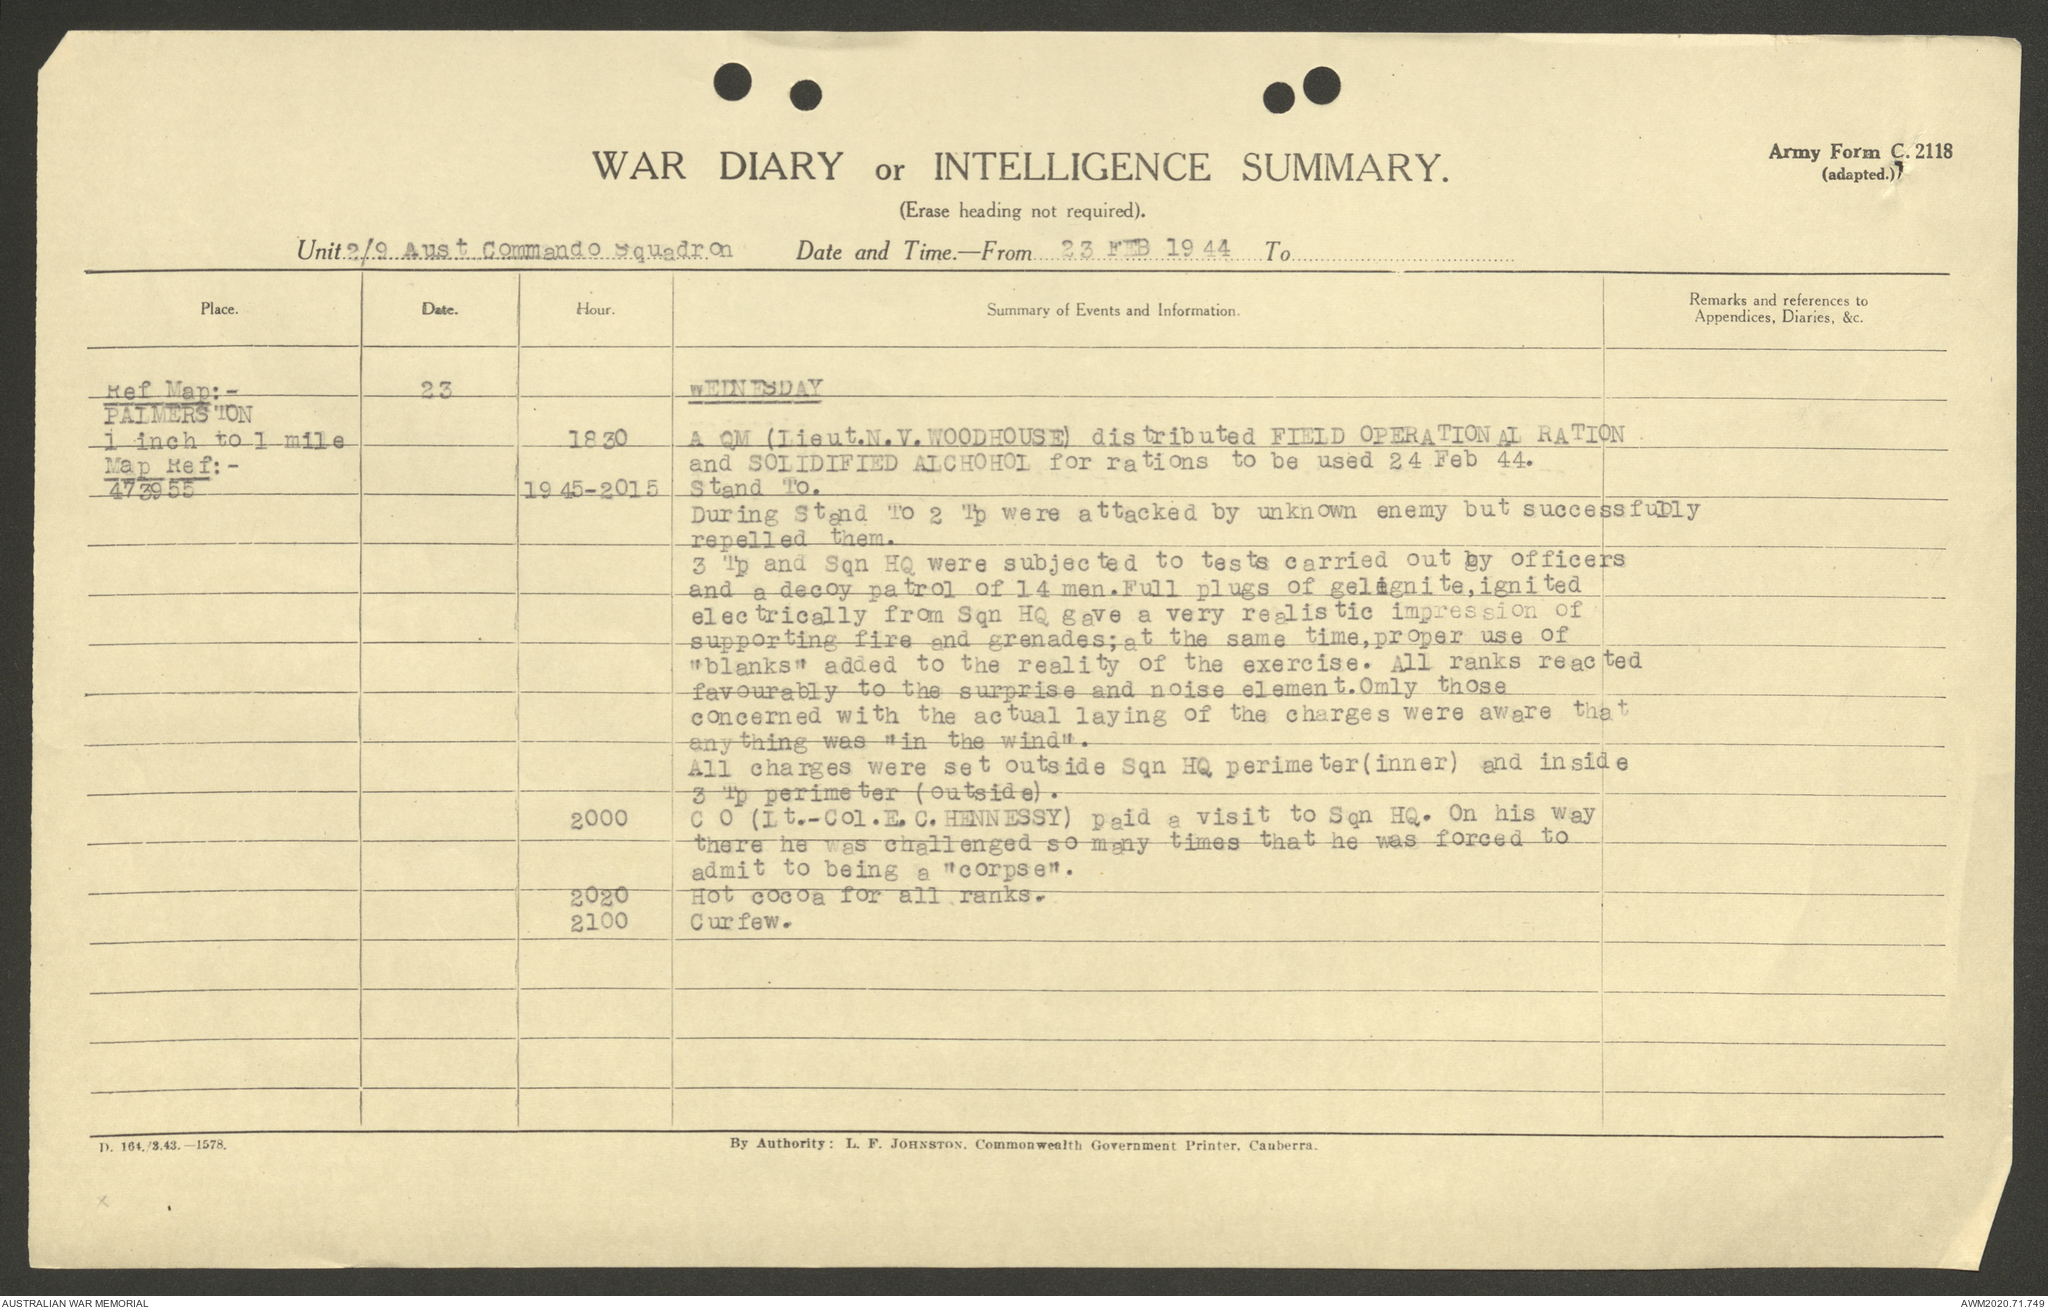 WAR DIARY or INTELLIGENCE SUMMARY.
Army Form C. 2118
(adapted.)
(Erase heading not required).
Unit 2/9 Aust Commando Squadron Date and Time.—From 23 FEB 1944 To
Place. Date. Hour. Summary of Events and Information. Remarks and references to
Appendices, Diaries, &c.
Ref Map:- 23 WEDNESDAY
PALMERSTON
1 inch to 1 mile 1830 A QM (Lieut.N.V.WOODHOUSE) distributed FIELD OPERATIONAL RATION
Map Ref:- and SOLIDIFIED ALCHOHOL for rations to be used 24 Feb 44.
473955 1945-2015 Stand To.
During Stand To 2 Tp were attacked by unknown enemy but successfully
repelled them.
3 Tp and Sqn HQ were subjected to tests carried out by officers
and a decoy patrol of 14 men.Full plugs of gelignite,ignited
electrically from Sqn HQ gave a very realistic impression of
supporting fire and grenades;at the same time,proper use of
"blanks" added to the reality of the exercise. All ranks reacted
favourably to the surprise and noise element.Omly those
concerned with the actual laying of the charges were aware that
anything was "in the wind".
All charges were set outside Sqn HQ perimeter(inner) and inside
3 Tp perimeter (outside).
2000 C O (Lt.-Col.E.C.HENNESSY) paid a visit to Sqn HQ. On his way
there he was challenged so many times that he was forced to
admit to being a "corpse".
2020 Hot cocoa for all ranks.
2100 Curfew.
D. 164./3.43.—1578. By Authority: L. F. JOHNSTON. Commonwealth Government Printer, Canberra.
AUSTRALIAN WAR MEMORIAL AWM2020.71.749